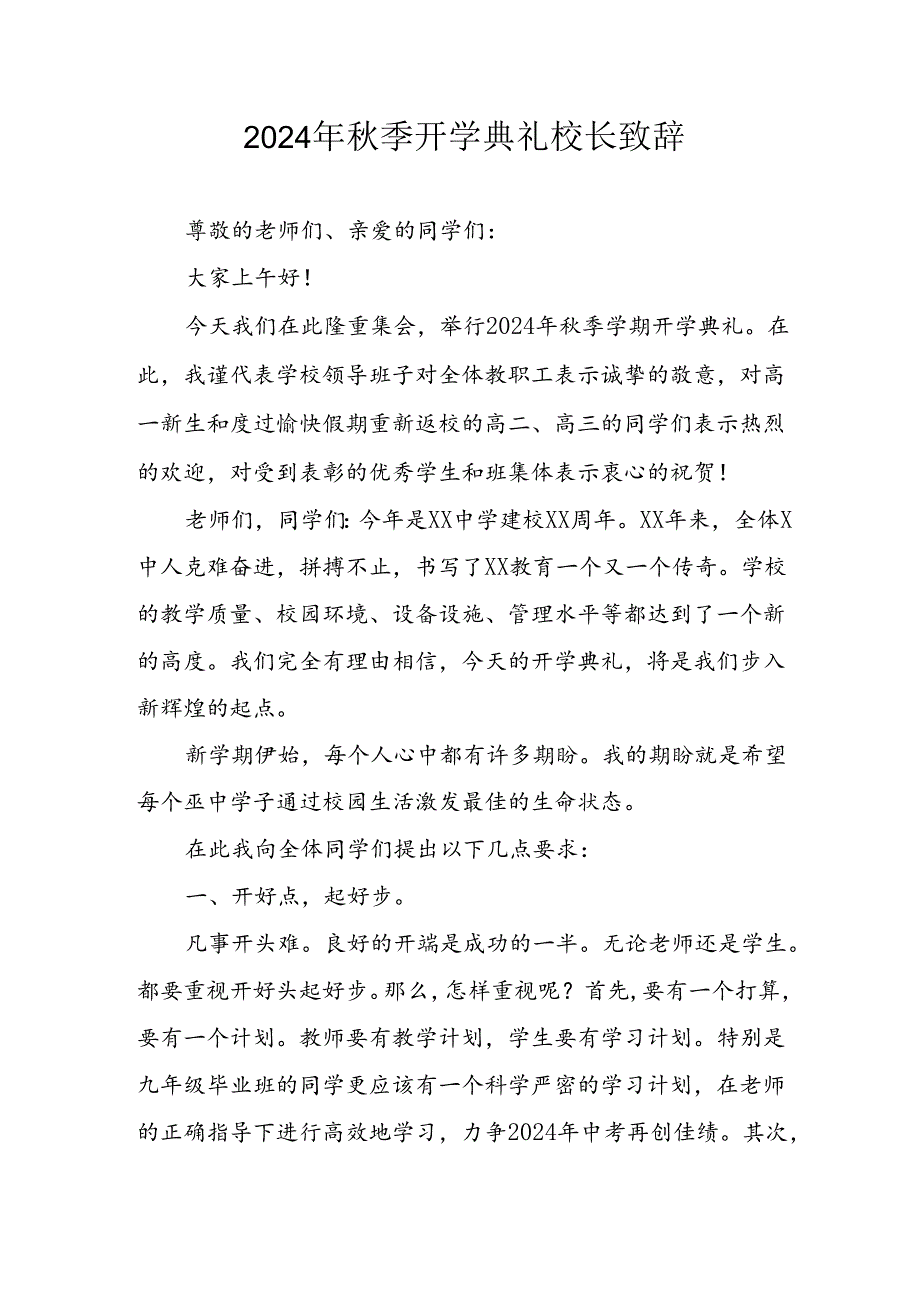 2024年秋季开学典礼校长致辞
尊敬的老师们、亲爱的同学们：
大家上午好！
今天我们在此隆重集会，举行2024年秋季学期开学典礼。在
此，我谨代表学校领导班子对全体教职工表示诚挚的敬意，对高
一新生和度过愉快假期重新返校的高二、高三的同学们表示热烈
的欢迎，对受到表彰的优秀学生和班集体表示衷心的祝贺！
老师们，同学们：今年是XX中学建校XX周年。XX年来，全体X
中人克难奋进，拼搏不止，书写了XX教育一个又一个传奇。学校
的教学质量、校园环境、设备设施、管理水平等都达到了一个新
的高度。我们完全有理由相信，今天的开学典礼，将是我们步入
新辉煌的起点。
新学期伊始，每个人心中都有许多期盼。我的期盼就是希望
每个巫中学子通过校园生活激发最佳的生命状态。
在此我向全体同学们提出以下几点要求：
一、开好点，起好步。
凡事开头难。良好的开端是成功的一半。无论老师还是学生。
都要重视开好头起好步。那么，怎样重视呢？首先，要有一个打算，
要有一个计划。教师要有教学计划，学生要有学习计划。特别是
九年级毕业班的同学更应该有一个科学严密的学习计划，在老师
的正确指导下进行高效地学习，力争2024年中考再创佳绩。其次，